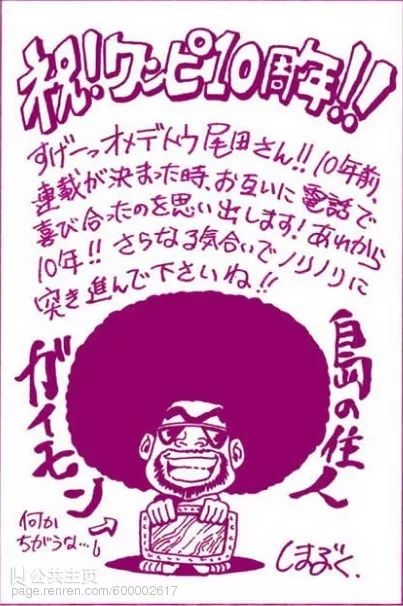 祝！ワンピ10周年！！
すげーっオメデトウ尾田さん！！10年前、
連載が決まった時、お互いに電話で
喜び合ったのを思い出します！あれから
10年！！さらなる気合いでノリノリに
突き進んで下さいね！！
島の住人
ガイモン
何か
ちがうな…
しまぶく.
人人公共主页
page.renren.com/600002617